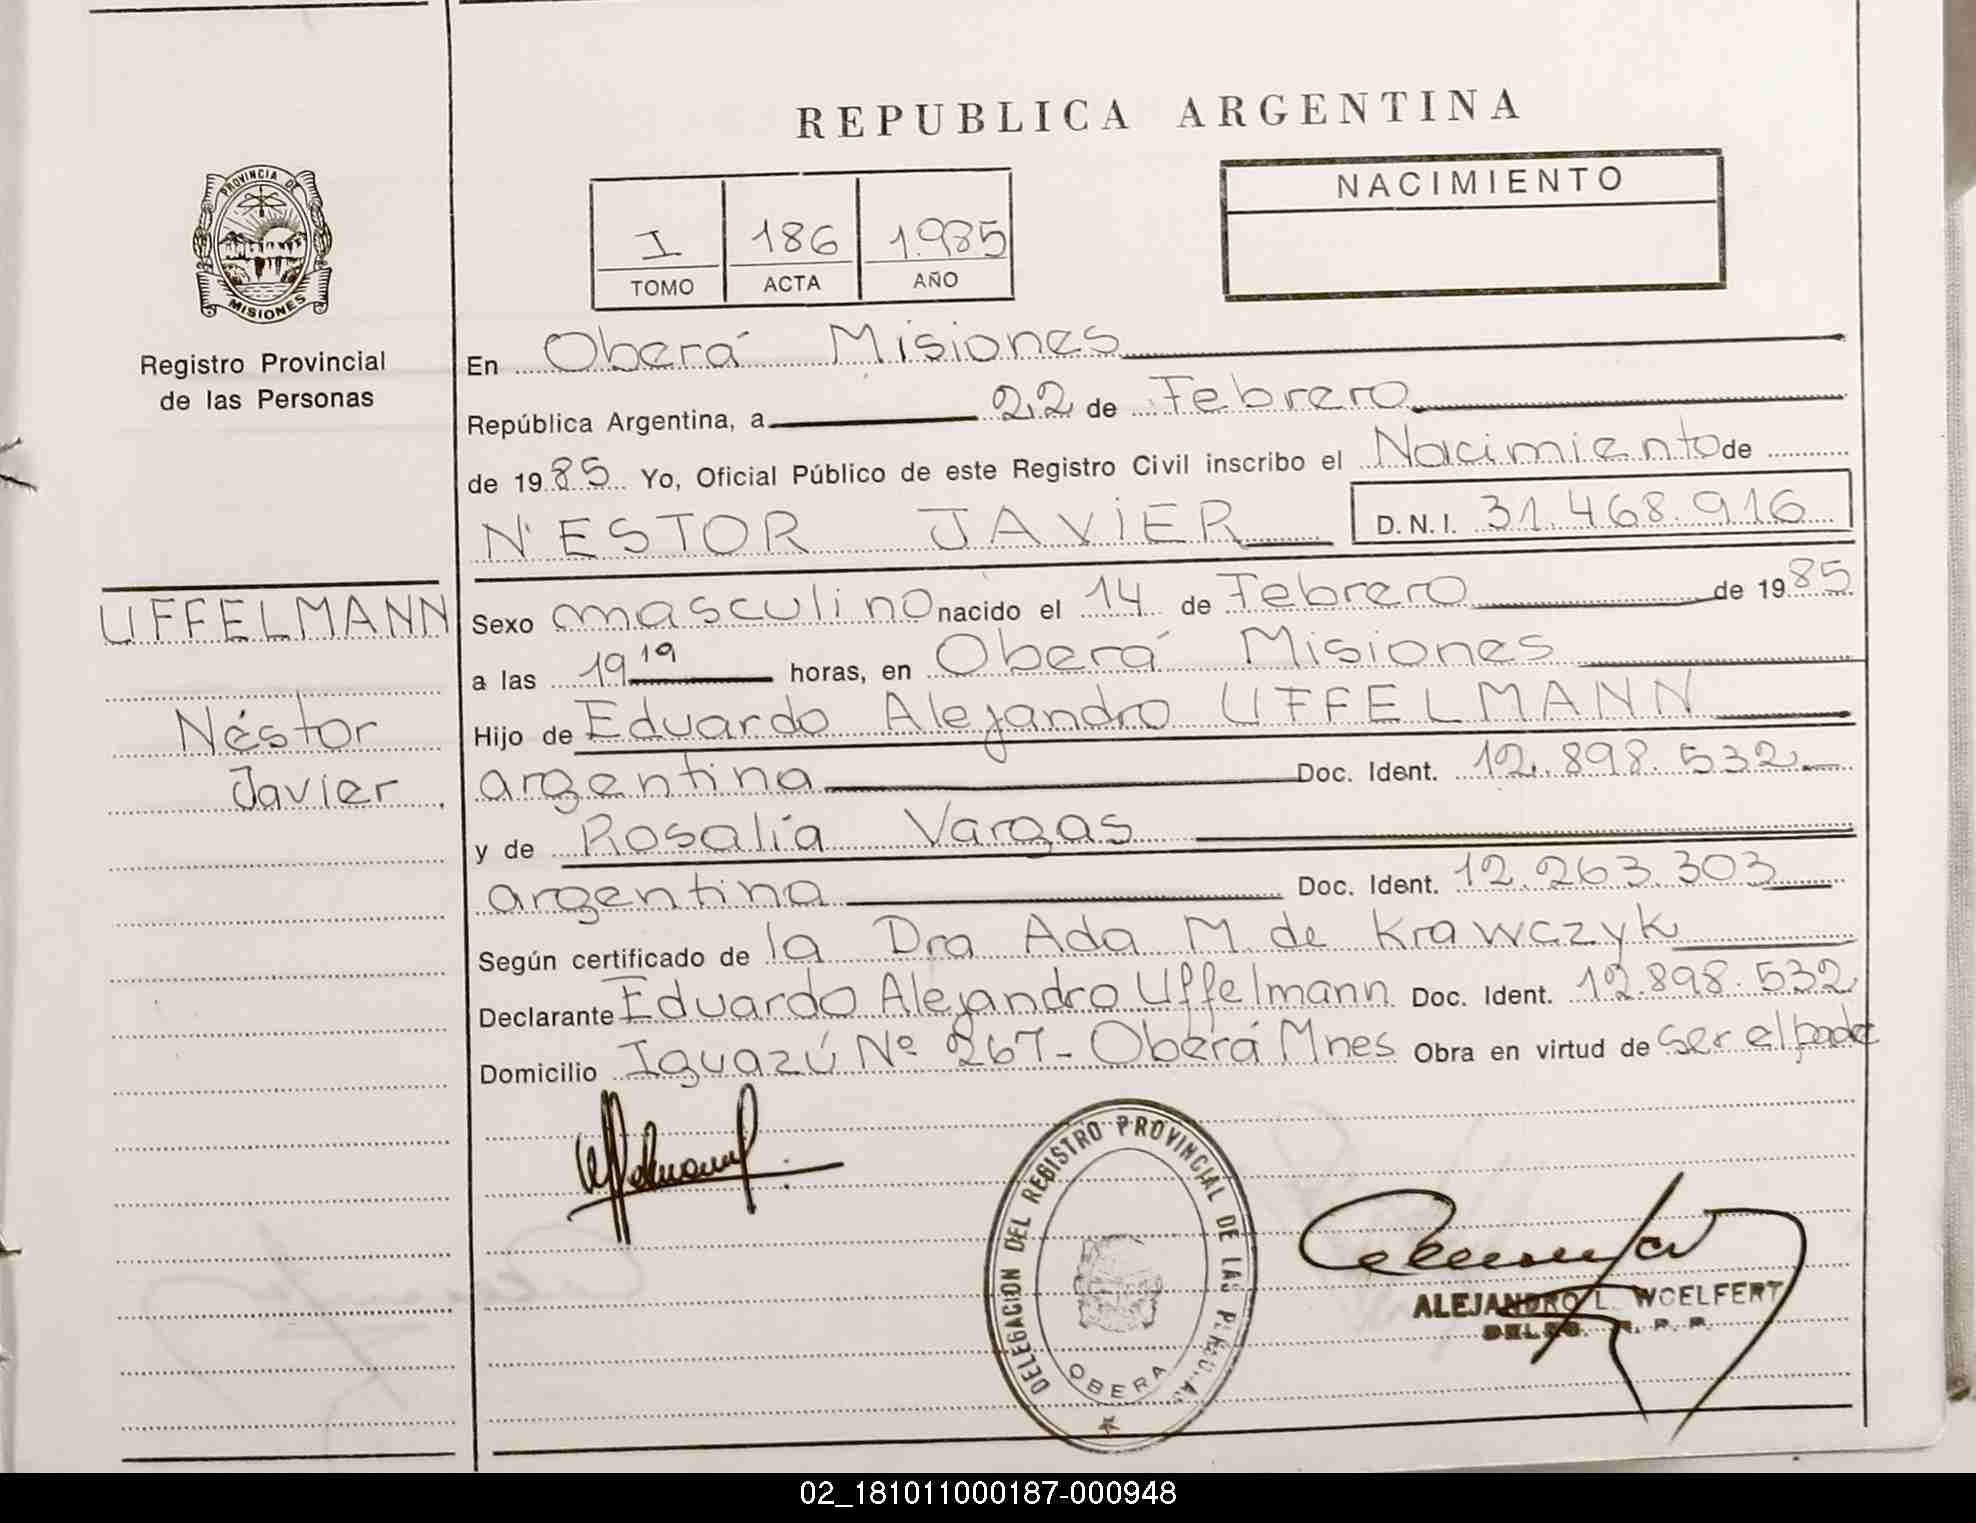 REPUBLICA ARGENTINA
PROVINCIA DE
MISIONES
Registro Provincial
de las Personas
I 186 1.985
TOMO ACTA AÑO
NACIMIENTO
En Oberá Misiones
República Argentina, a 22 de Febrero
de 1985 Yo, Oficial Público de este Registro Civil inscribo el Nacimiento de
NESTOR JAVIER D.N.I. 31.468.916
UFFELMANN
Néstor
Javier
Sexo masculino nacido el 14 de Febrero de 1985
a las 19 19 horas, en Oberá Misiones
Hijo de Eduardo Alejandro UFFELMANN
argentina Doc. Ident. 12.898.532
y de Rosalía Vargas
argentina Doc. Ident. 12.263.303
Según certificado de la Dra Ada M de Krawczyk
Declarante Eduardo Alejandro Uffelmann Doc. Ident. 12.898.532
Domicilio Iguazú Nº 267- Oberá Mnes Obra en virtud de ser el padre
Uffelmann
DELEGACION DEL REGISTRO PROVINCIAL DE LAS PERSONAS
OBERA
ALEJANDRO L. WOELFERT
R. P. P.
02_181011000187-000948